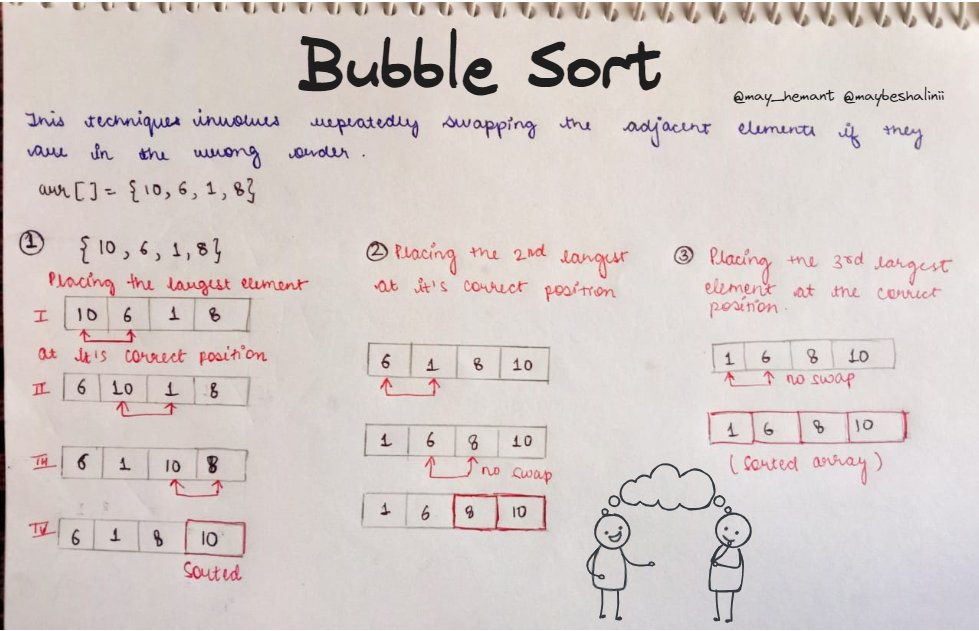 Bubble Sort
@may_hemant @maybeshalinii
This techniques involves repeatedly swapping the adjacent elements if they
are in the wrong order.
arr[] = {10, 6, 1, 8}
① {10, 6, 1, 8}
Placing the largest element
I 10 6 1 8
at it's correct position
II 6 10 1 8
III 6 1 10 8
IV 6 1 8 10
Sorted
② Placing the 2nd largest
at it's correct position
6 1 8 10
1 6 8 10
no swap
1 6 8 10
③ Placing the 3rd largest
element at the correct
position.
1 6 8 10
no swap
1 6 8 10
(sorted array)